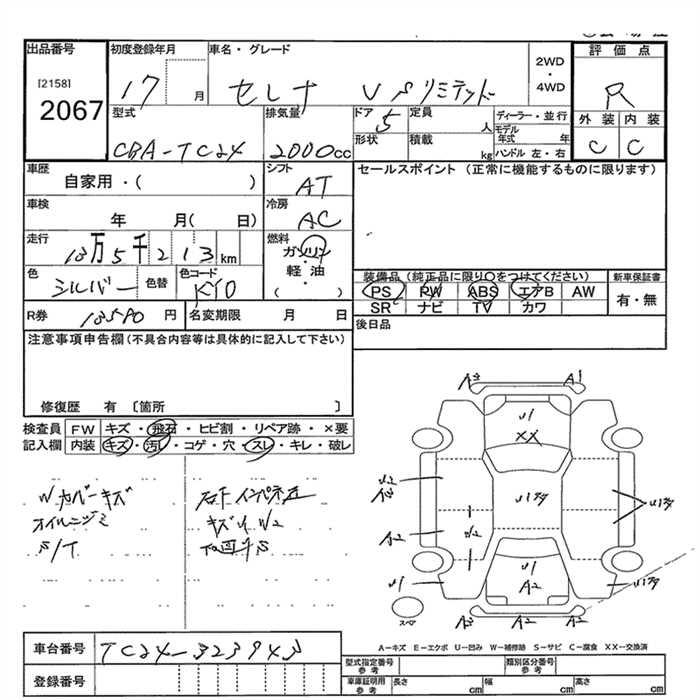 出品番号
[2158]
2067
初度登録年月
17
月
車名・グレード
セレナ V S リミテッド
2WD
・
4WD
評価点
R
型式
CBA-TC24
排気量
2000cc
ドア
5
形状
定員
人
積載
kg
ディーラー・並行
モデル年式
年
ハンドル 左・右
外装
内装
C
C
車歴
自家用・( )
シフト
AT
セールスポイント (正常に機能するものに限ります)
車検
年 月( 日)
冷房
AC
走行
13万5千213km
燃料
ガソリン
・
軽油
( )
色
シルバー
色替
色コード
KY0
装備品 (純正品に限り○をつけてください)
新車保証書
PS
PW
ABS
エアB
AW
有・無
SR
ナビ
TV
カワ
R券
13590円
名変期限
月 日
後日品
注意事項申告欄(不具合内容等は具体的に記入して下さい)
修復歴 有 〔箇所 〕
検査員
記入欄
FW
キズ・飛石・ヒビ割・リペア跡・×要
内装
キズ・汚レ・コゲ・穴・スレ・キレ・破レ
W カバーキズ
オイルニジミ
S/T
A3
A1
U1
XX
A2
W2
U1
U1
A2
A3
A2
A2
スペア
A-キズ E-エクボ U-凹み W-補修跡 S-サビ C-腐食 XX-交換済
車台番号
TC24-323943
登録番号
型式指定番号
参考
類別区分番号
参考
車庫証明用
参考
長さ
cm
幅
cm
高さ
cm